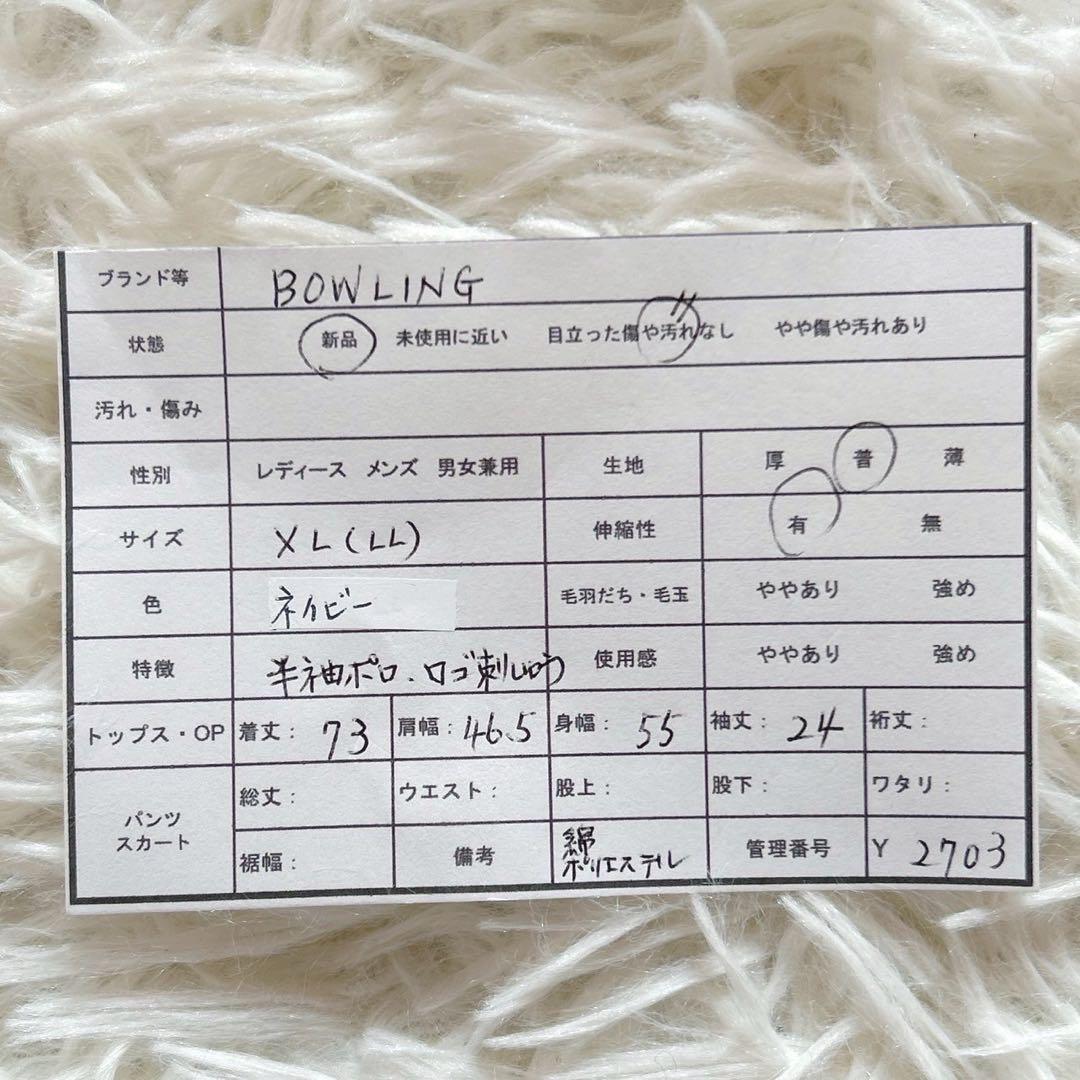 ブランド等 BOWLING
状態 新品 未使用に近い 目立った傷や汚れなし やや傷や汚れあり
汚れ・傷み
性別 レディース メンズ 男女兼用 生地 厚 普 薄
サイズ XL(LL) 伸縮性 有 無
色 ネイビー 毛羽だち・毛玉 ややあり 強め
特徴 半袖ポロ、ロゴ刺しゅう 使用感 ややあり 強め
トップス・OP 着丈: 73 肩幅: 46.5 身幅: 55 袖丈: 24 裄丈:
パンツ
スカート
総丈: ウエスト: 股上: 股下: ワタリ:
裾幅: 備考 綿
ポリエステル
管理番号 Y 2703